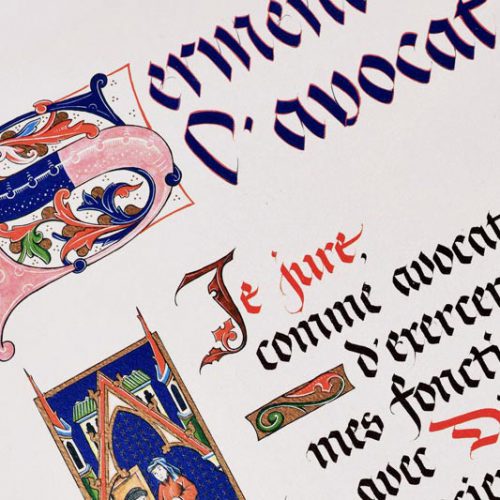 Serment
D'avocat
Je jure,
comme avocat
d'exercer
mes foncti
avec